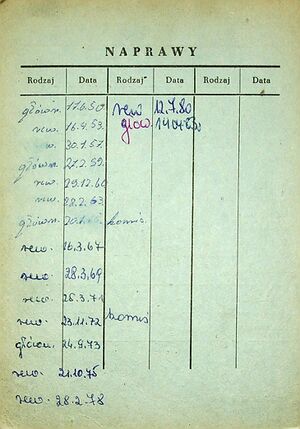 NAPRAWY
Rodzaj Data Rodzaj Data Rodzaj Data
główn. 17.6.50. rew 12.7.80
rew. 16.9.53. głow.
w. 30.1.57.
główn. 27.2.59.
rew. 29.12.60
rew. 28.2.63.
główn. komis.
rew. 16.3.67
rew. 28.3.69
rew. 25.3.71
rew. 23.11.72 komis
główn. 24.9.73
rew. 21.10.75
rew. 28.2.78